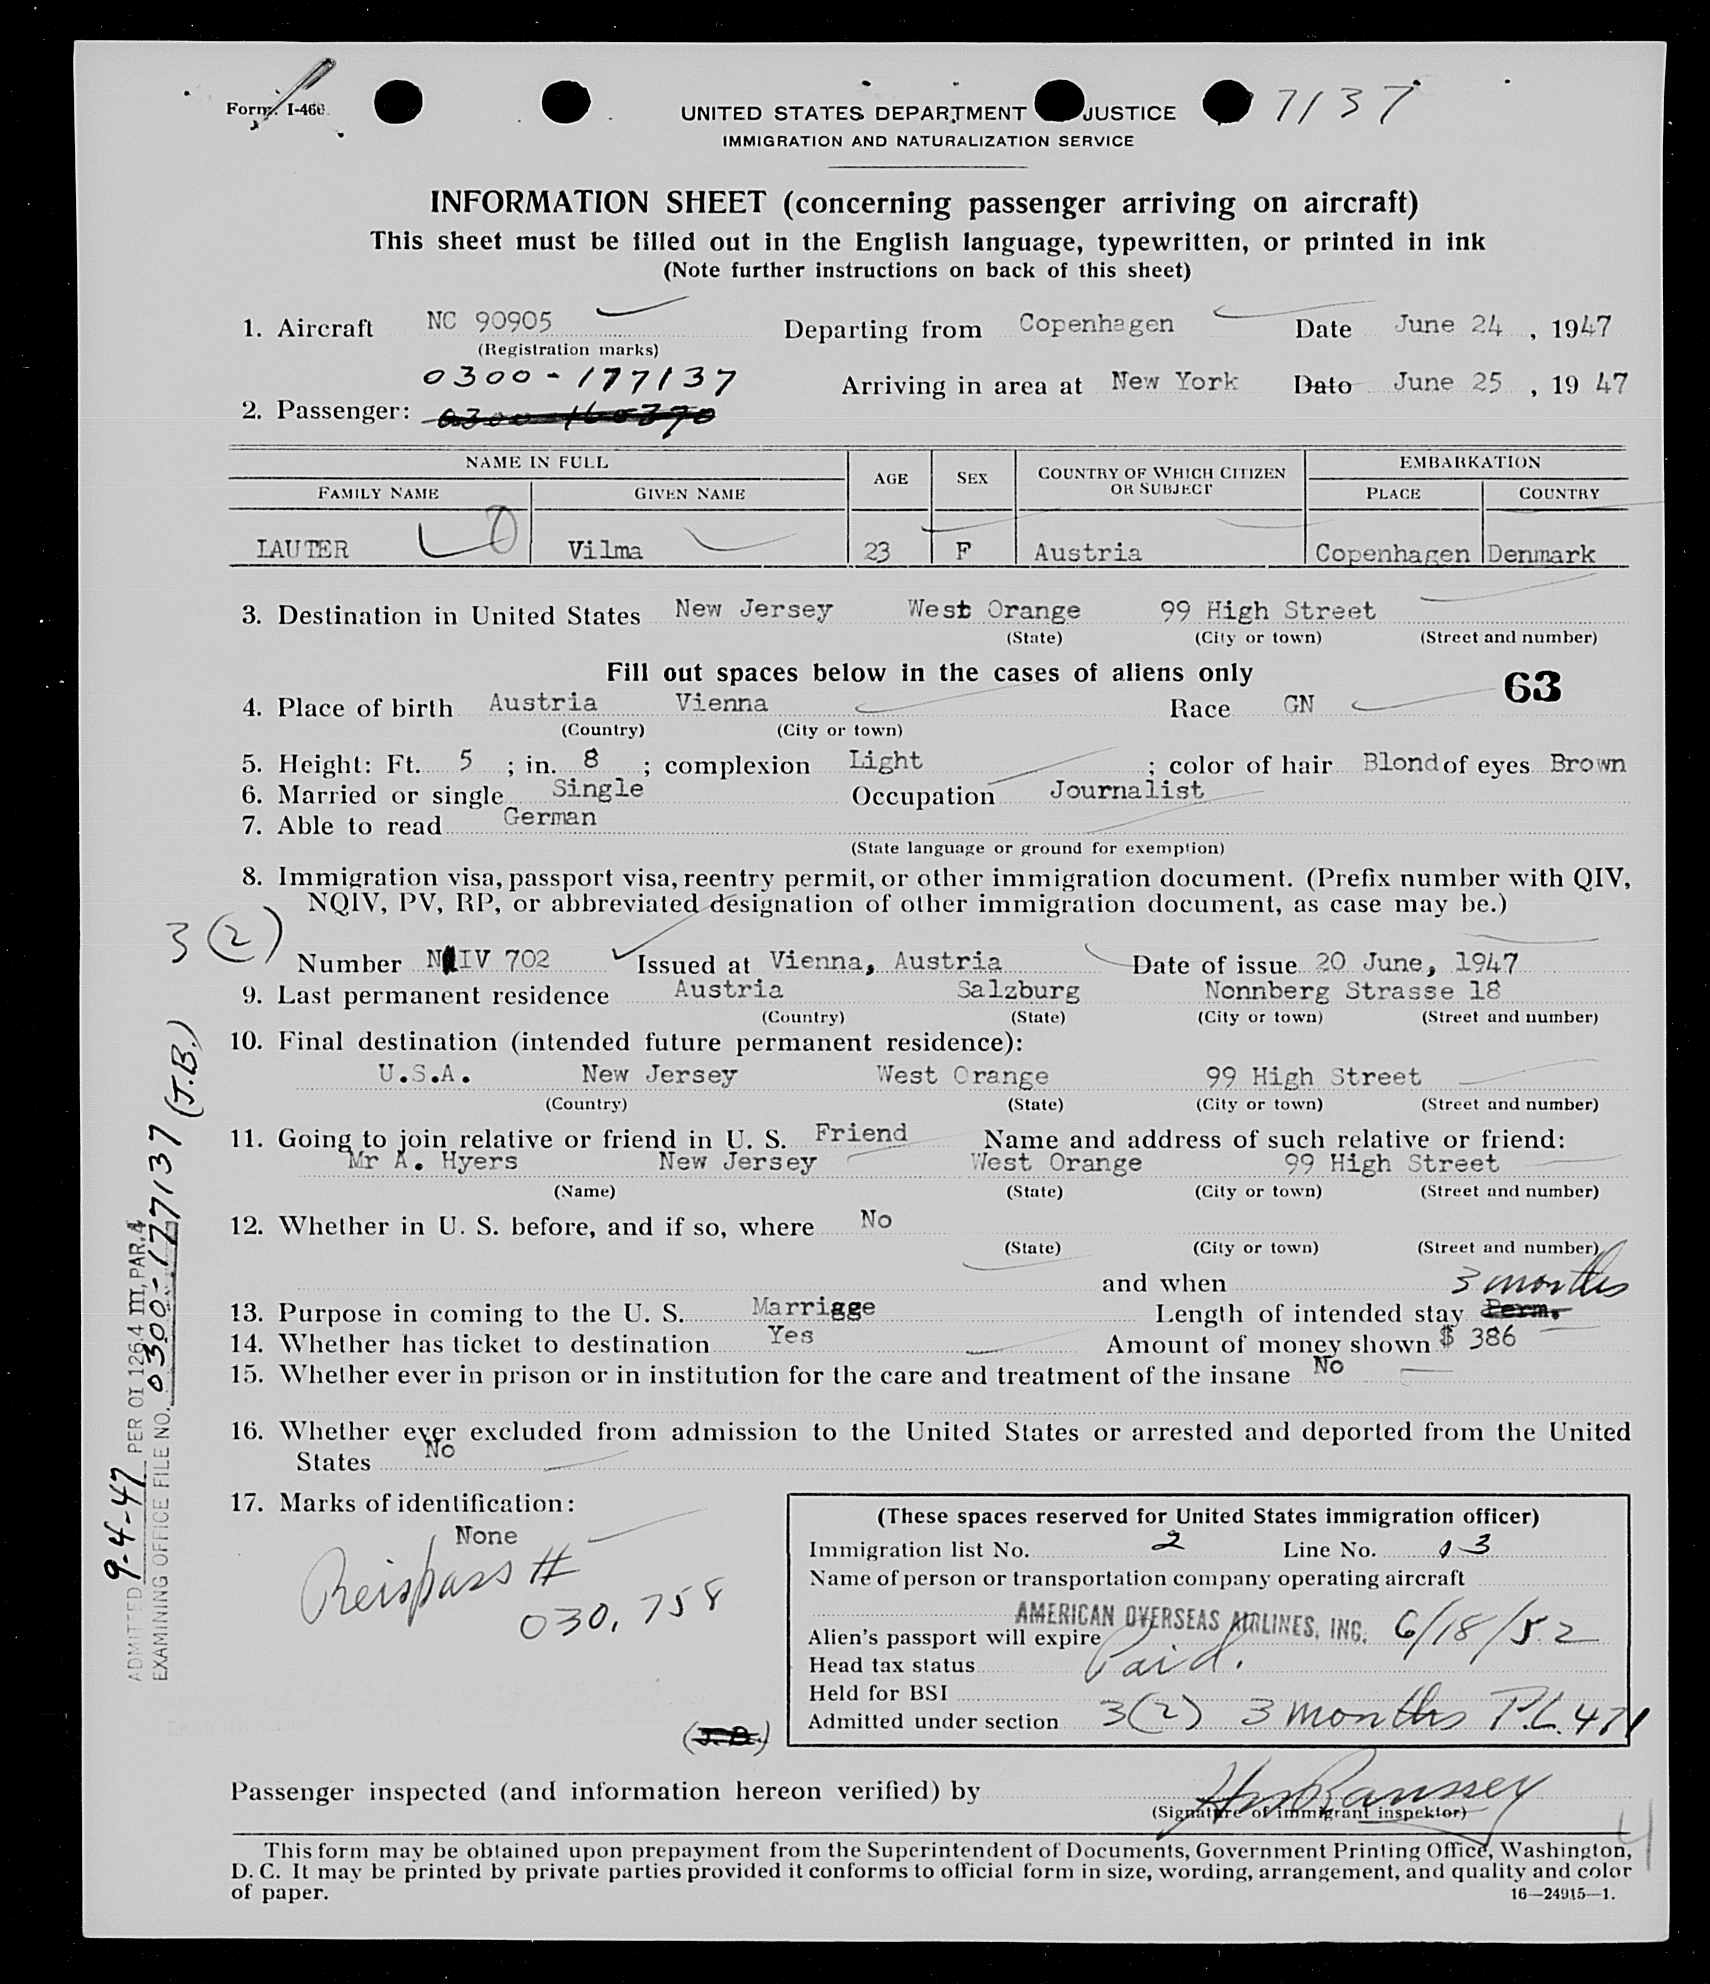 Form I-466
UNITED STATES DEPARTMENT JUSTICE 7137
IMMIGRATION AND NATURALIZATION SERVICE
INFORMATION SHEET (concerning passenger arriving on aircraft)
This sheet must be filled out in the English language, typewritten, or printed in ink
(Note further instructions on back of this sheet)
1. Aircraft NC 90905 Departing from Copenhagen Date June 24, 1947
(Registration marks)
0300-177137 Arriving in area at New York Date June 25, 19 47
2. Passenger: 0300-160390
NAME IN FULL AGE SEX COUNTRY OF WHICH CITIZEN OR SUBJECT EMBARKATION
FAMILY NAME GIVEN NAME PLACE COUNTRY
LAUTER Vilma 23 F Austria Copenhagen Denmark
3. Destination in United States New Jersey West Orange 99 High Street
(State) (City or town) (Street and number)
Fill out spaces below in the cases of aliens only
63
4. Place of birth Austria Vienna Race GN
(Country) (City or town)
5. Height: Ft. 5 ; in. 8 ; complexion Light ; color of hair Blond of eyes Brown
6. Married or single Single Occupation Journalist
7. Able to read German
(State language or ground for exemption)
8. Immigration visa, passport visa, reentry permit, or other immigration document. (Prefix number with QIV,
NQIV, PV, RP, or abbreviated designation of other immigration document, as case may be.)
3(2)
Number N IV 702 Issued at Vienna, Austria Date of issue 20 June, 1947
9. Last permanent residence Austria Salzburg Nonnberg Strasse 18
(Country) (State) (City or town) (Street and number)
10. Final destination (intended future permanent residence):
U.S.A. New Jersey West Orange 99 High Street
(Country) (State) (City or town) (Street and number)
11. Going to join relative or friend in U. S. Friend Name and address of such relative or friend:
Mr A. Hyers New Jersey West Orange 99 High Street
(Name) (State) (City or town) (Street and number)
12. Whether in U. S. before, and if so, where No
(State) (City or town) (Street and number)
and when 3 months
13. Purpose in coming to the U. S. Marrigge Length of intended stay Perm.
14. Whether has ticket to destination Yes Amount of money shown $ 386
15. Whether ever in prison or in institution for the care and treatment of the insane No
16. Whether ever excluded from admission to the United States or arrested and deported from the United
States No
17. Marks of identification:
None
Reispass #
030,758
(These spaces reserved for United States immigration officer)
Immigration list No. 2 Line No. 13
Name of person or transportation company operating aircraft
AMERICAN OVERSEAS AIRLINES, INC.
Alien's passport will expire 6/18/52
Head tax status Paid.
Held for BSI
Admitted under section 3(2) 3 months P.L. 471
(J.B.)
Passenger inspected (and information hereon verified) by
(Signature of immigrant inspektor)
4
This form may be obtained upon prepayment from the Superintendent of Documents, Government Printing Office, Washington,
D. C. It may be printed by private parties provided it conforms to official form in size, wording, arrangement, and quality and color
of paper.
16—24915—1.
ADMITTED 9-4-47 PER OI 126.4 III, PAR. 4
EXAMINING OFFICE FILE NO. 0300-177137 (J.B.)